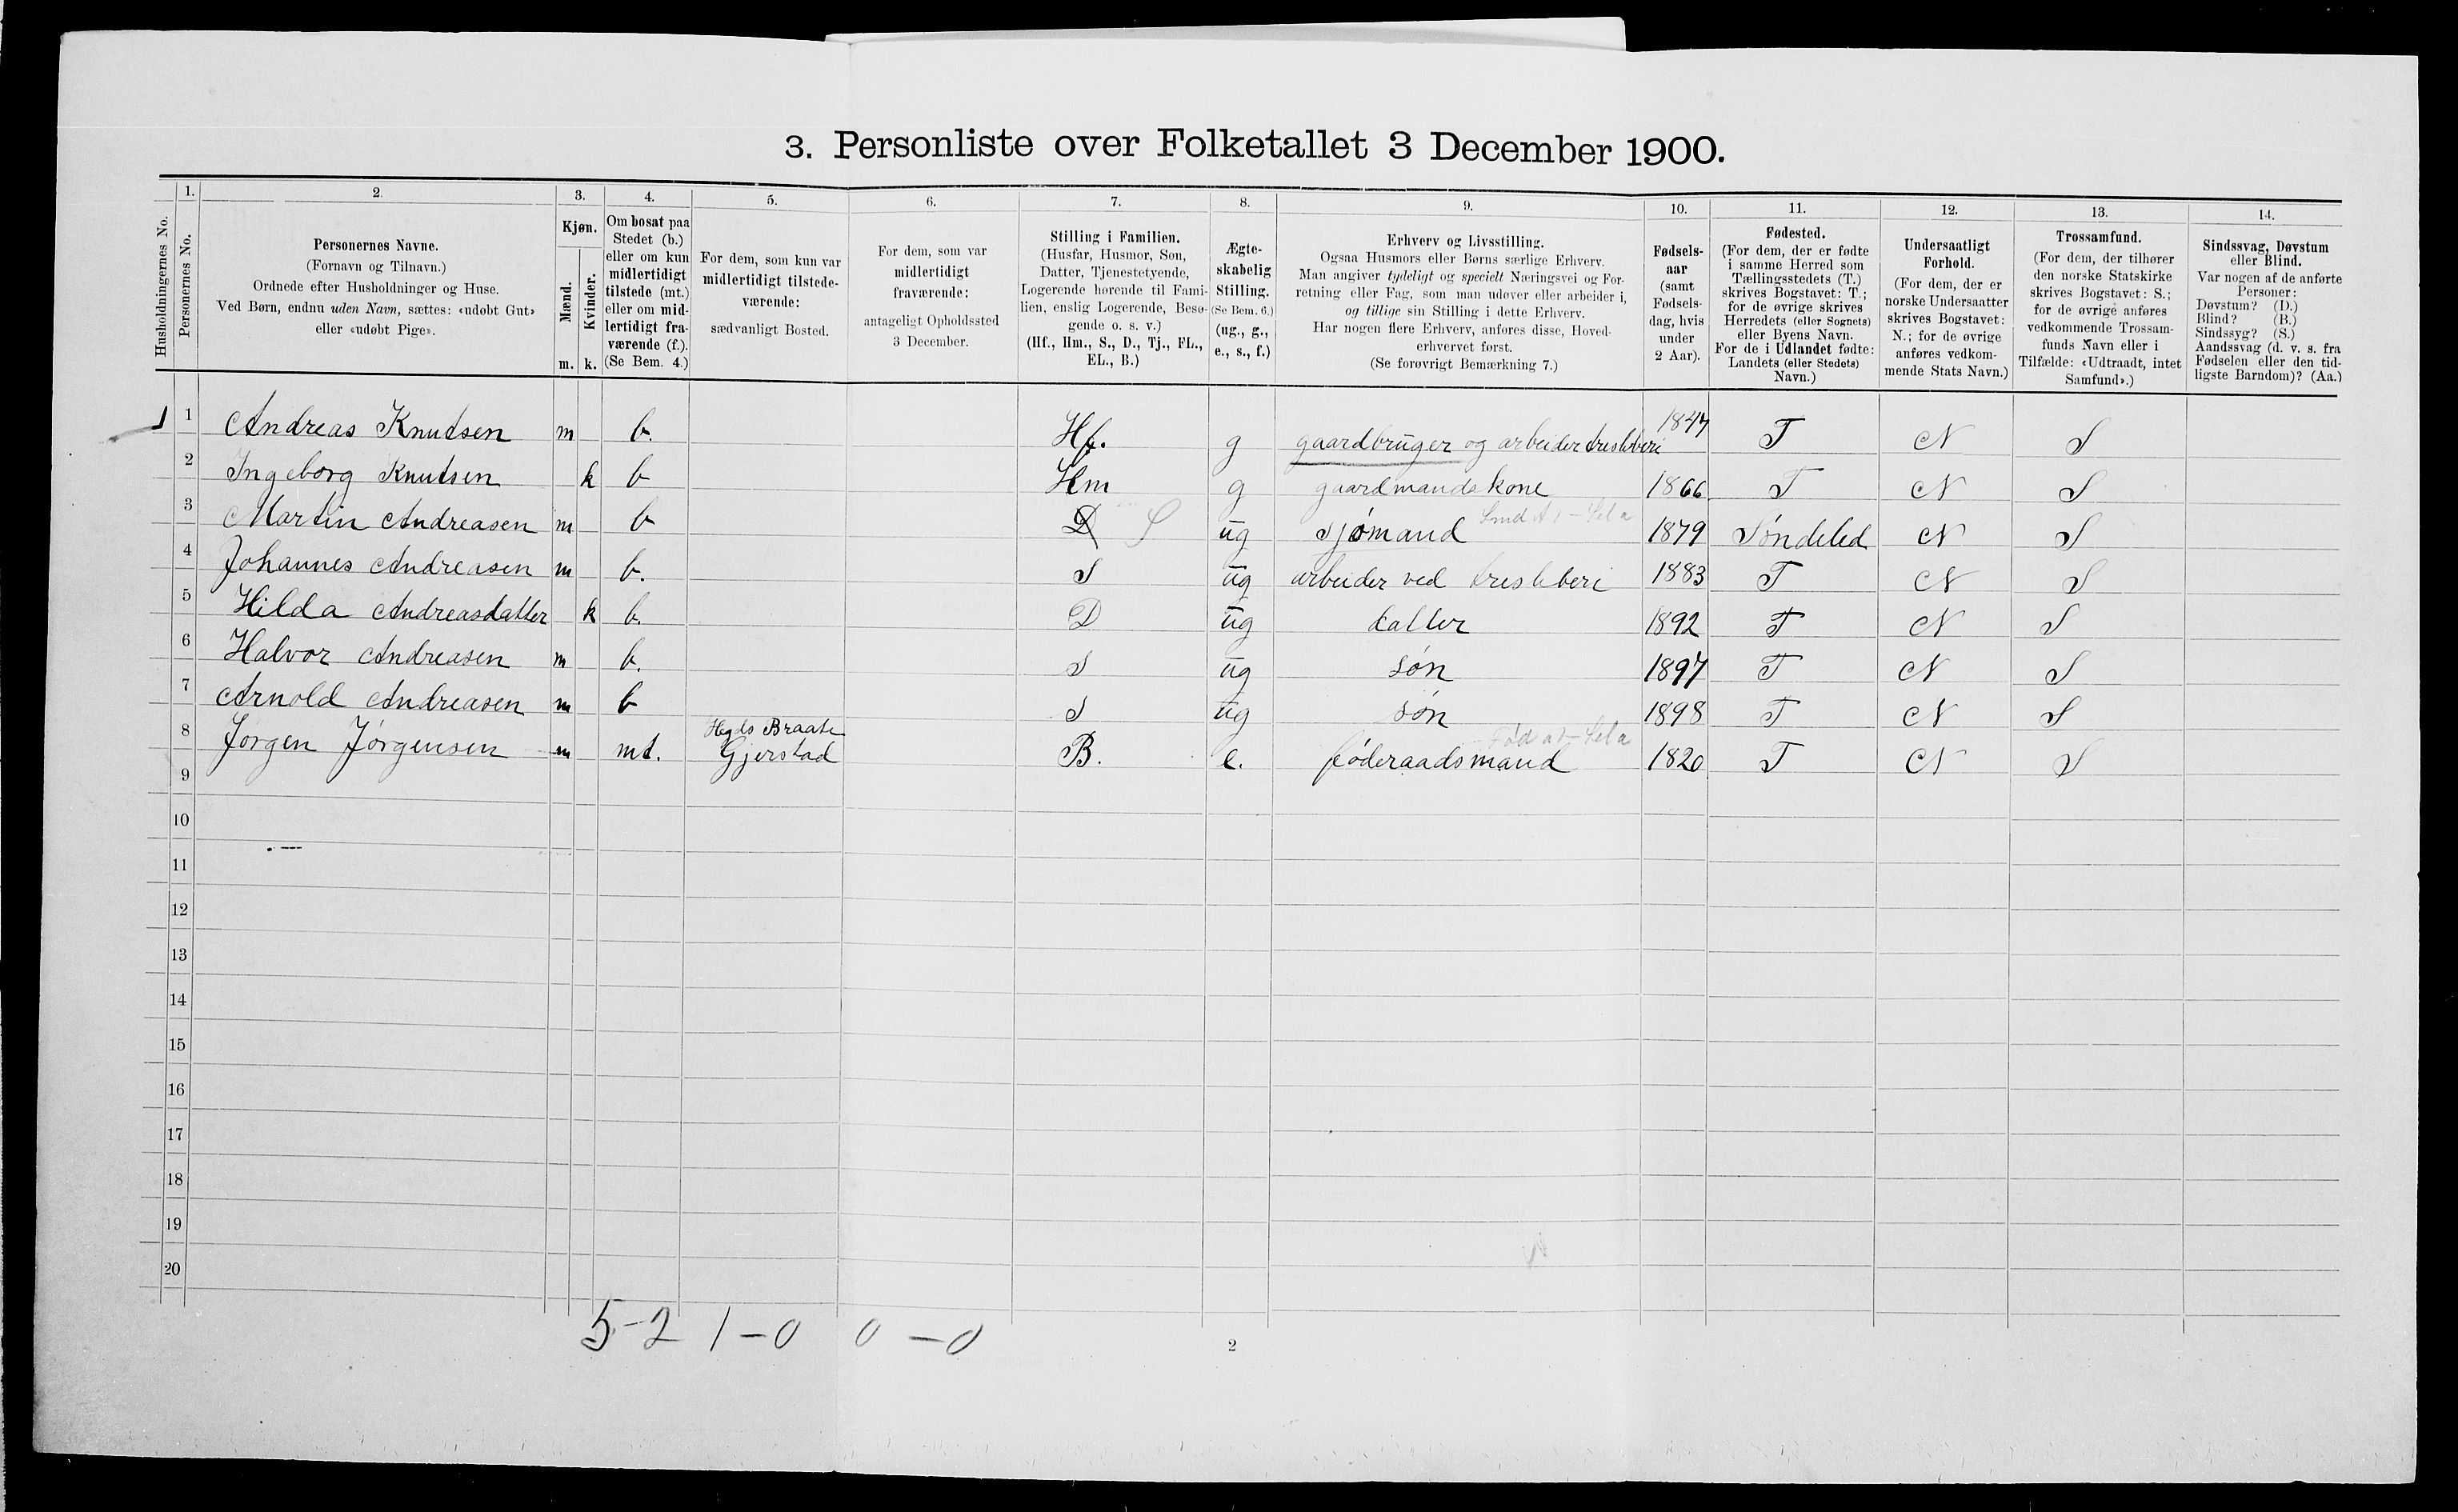 3. Personliste over Folketallet 3 December 1900.
Husholdningernes No.
1.
Personernes No.
2.
Personernes Navne.
(Fornavn og Tilnavn.)
Ordnede efter Husholdninger og Huse.
Ved Børn, endnu uden Navn, sættes: «udøbt Gut»
eller «udøbt Pige».
3.
Kjøn.
Mænd.
Kvinder.
m. k.
4.
Om bosat paa
Stedet (b.)
eller om kun
midlertidigt
tilstede (mt.)
eller om mid-
lertidigt fra-
værende (f.).
(Se Bem. 4.)
5.
For dem, som kun var
midlertidigt tilstede-
værende:
sædvanligt Bosted.
6.
For dem, som var
midlertidigt
fraværende:
antageligt Opholdssted
3 December.
7.
Stilling i Familien.
(Husfar, Husmor, Søn,
Datter, Tjenestetyende,
Logerende hørende til Fami-
lien, enslig Logerende, Besø-
gende o. s. v.)
(Hf., Hm., S., D., Tj., FL.,
EL., B.)
8.
Ægte-
skabelig
Stilling.
(Se Bem. 6.)
(ug., g.,
e., s., f.)
9.
Erhverv og Livsstilling.
Ogsaa Husmors eller Børns særlige Erhverv.
Man angiver tydeligt og specielt Næringsvei og For-
retning eller Fag, som man udøver eller arbeider i,
og tillige sin Stilling i dette Erhverv.
Har nogen flere Erhverv, anføres disse, Hoved-
erhvervet først.
(Se forøvrigt Bemærkning 7.)
10.
Fødsels-
aar
(samt
Fødsels-
dag, hvis
under
2 Aar).
11.
Fødested.
(For dem, der er fødte
i samme Herred som
Tællingsstedets (T.)
skrives Bogstavet: T.;
for de øvrige skrives
Herredets (eller Sognets)
eller Byens Navn.
For de i Udlandet fødte:
Landets (eller Stedets)
Navn.)
12.
Undersaatligt
Forhold.
(For dem, der er
norske Undersaatter
skrives Bogstavet:
N.; for de øvrige
anføres vedkom-
mende Stats Navn.)
13.
Trossamfund.
(For dem, der tilhører
den norske Statskirke
skrives Bogstavet: S.;
for de øvrige anføres
vedkommende Trossam-
funds Navn eller i
Tilfælde: «Udtraadt, intet
Samfund».)
14.
Sindssvag, Døvstum
eller Blind.
Var nogen af de anførte
Personer:
Døvstum? (D.)
Blind? (B.)
Sindssyg? (S.)
Aandssvag (d. v. s. fra
Fødselen eller den tid-
ligste Barndom)? (Aa.)
1 1 Andreas Knudsen m b. Hf. g gaardbruger og arbeider tresliberi 1847 T N S
2 Ingeborg Knudsen k b Hm g gaardmands kone 1866 T N S
3 Martin Andreasen m b D S ug sjømand 1879 Søndeled N S
4 Johannes Andreasen m b. S ug arbeider ved tresliberi 1883 T N S
5 Hilda Andreasdatter k b. D ug datter 1892 T N S
6 Halvor Andreasen m b. S ug søn 1897 T N S
7 Arnold Andreasen m b S ug søn 1898 T N S
8 Jørgen Jørgensen m mt. Braate Gjerstad B. e. føderaadsmand 1820 T N S
9
10
11
12
13
14
15
16
17
18
19
20
5-2 1-0 0-0
2